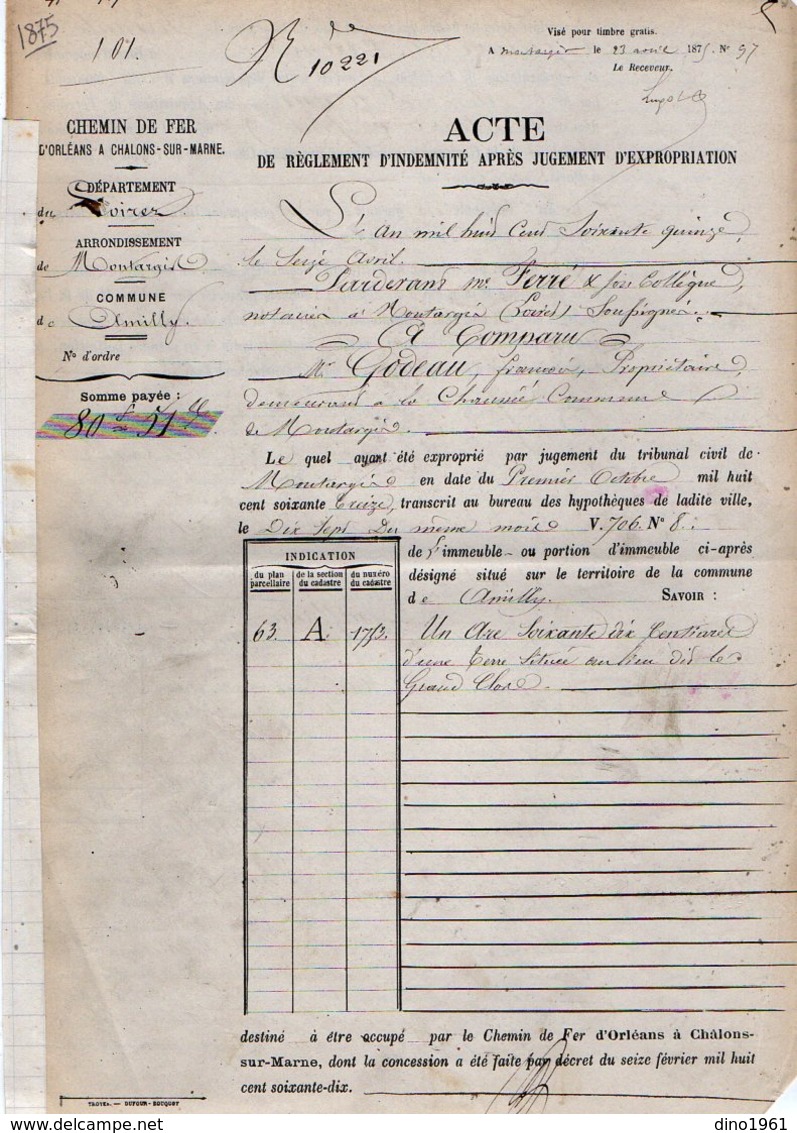 1875
101.
10221
Visé pour timbre gratis.
A Montargis le 23 avril 1875 N° 97
Le Receveur.
CHEMIN DE FER
D'ORLÉANS A CHALONS-SUR-MARNE.
DÉPARTEMENT
du Loiret
ARRONDISSEMENT
de Montargis
COMMUNE
de Amilly
N° d'ordre
Somme payée :
80 f 51 c
ACTE
DE RÈGLEMENT D'INDEMNITÉ APRÈS JUGEMENT D'EXPROPRIATION
L'an mil huit cent soixante quinze,
le seize Avril.
Pardevant Me Ferré & son collègue,
notaires à Montargis (Loiret) soussignés.
A Comparu
Mr Godeau, françois, Propriétaire,
demeurant à la Chaussée Commune
de Montargis.
Le quel ayant été exproprié par jugement du tribunal civil de
Montargis en date du Premier Octobre mil huit
cent soixante treize, transcrit au bureau des hypothèques de ladite ville,
le Dix sept du même mois V. 706. N° 8.
de l'immeuble ou portion d'immeuble ci-après
désigné situé sur le territoire de la commune
de Amilly. SAVOIR :
INDICATION
du plan parcellaire de la section du cadastre du numéro du cadastre
63. A. 1753.
Un Are Soixante dix Centiares
d'une terre située au lieu dit le
Grand Clos.
destiné à être occupé par le Chemin de Fer d'Orléans à Châlons-
sur-Marne, dont la concession a été faite par décret du seize février mil huit
cent soixante-dix.
TROYES. — DUFOUR-BOUQUOT
dino1961